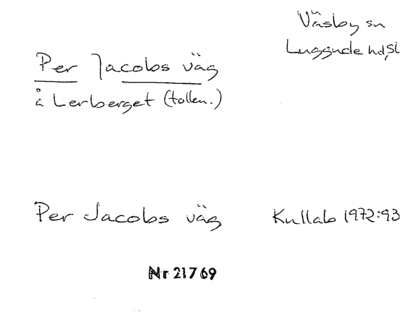 Väsby sn
Luggude hd, Sk
Per Jacobs väg
å Lerberget (tollen.)
Per Jacobs väg Kullab 1972:93
Nr 21769